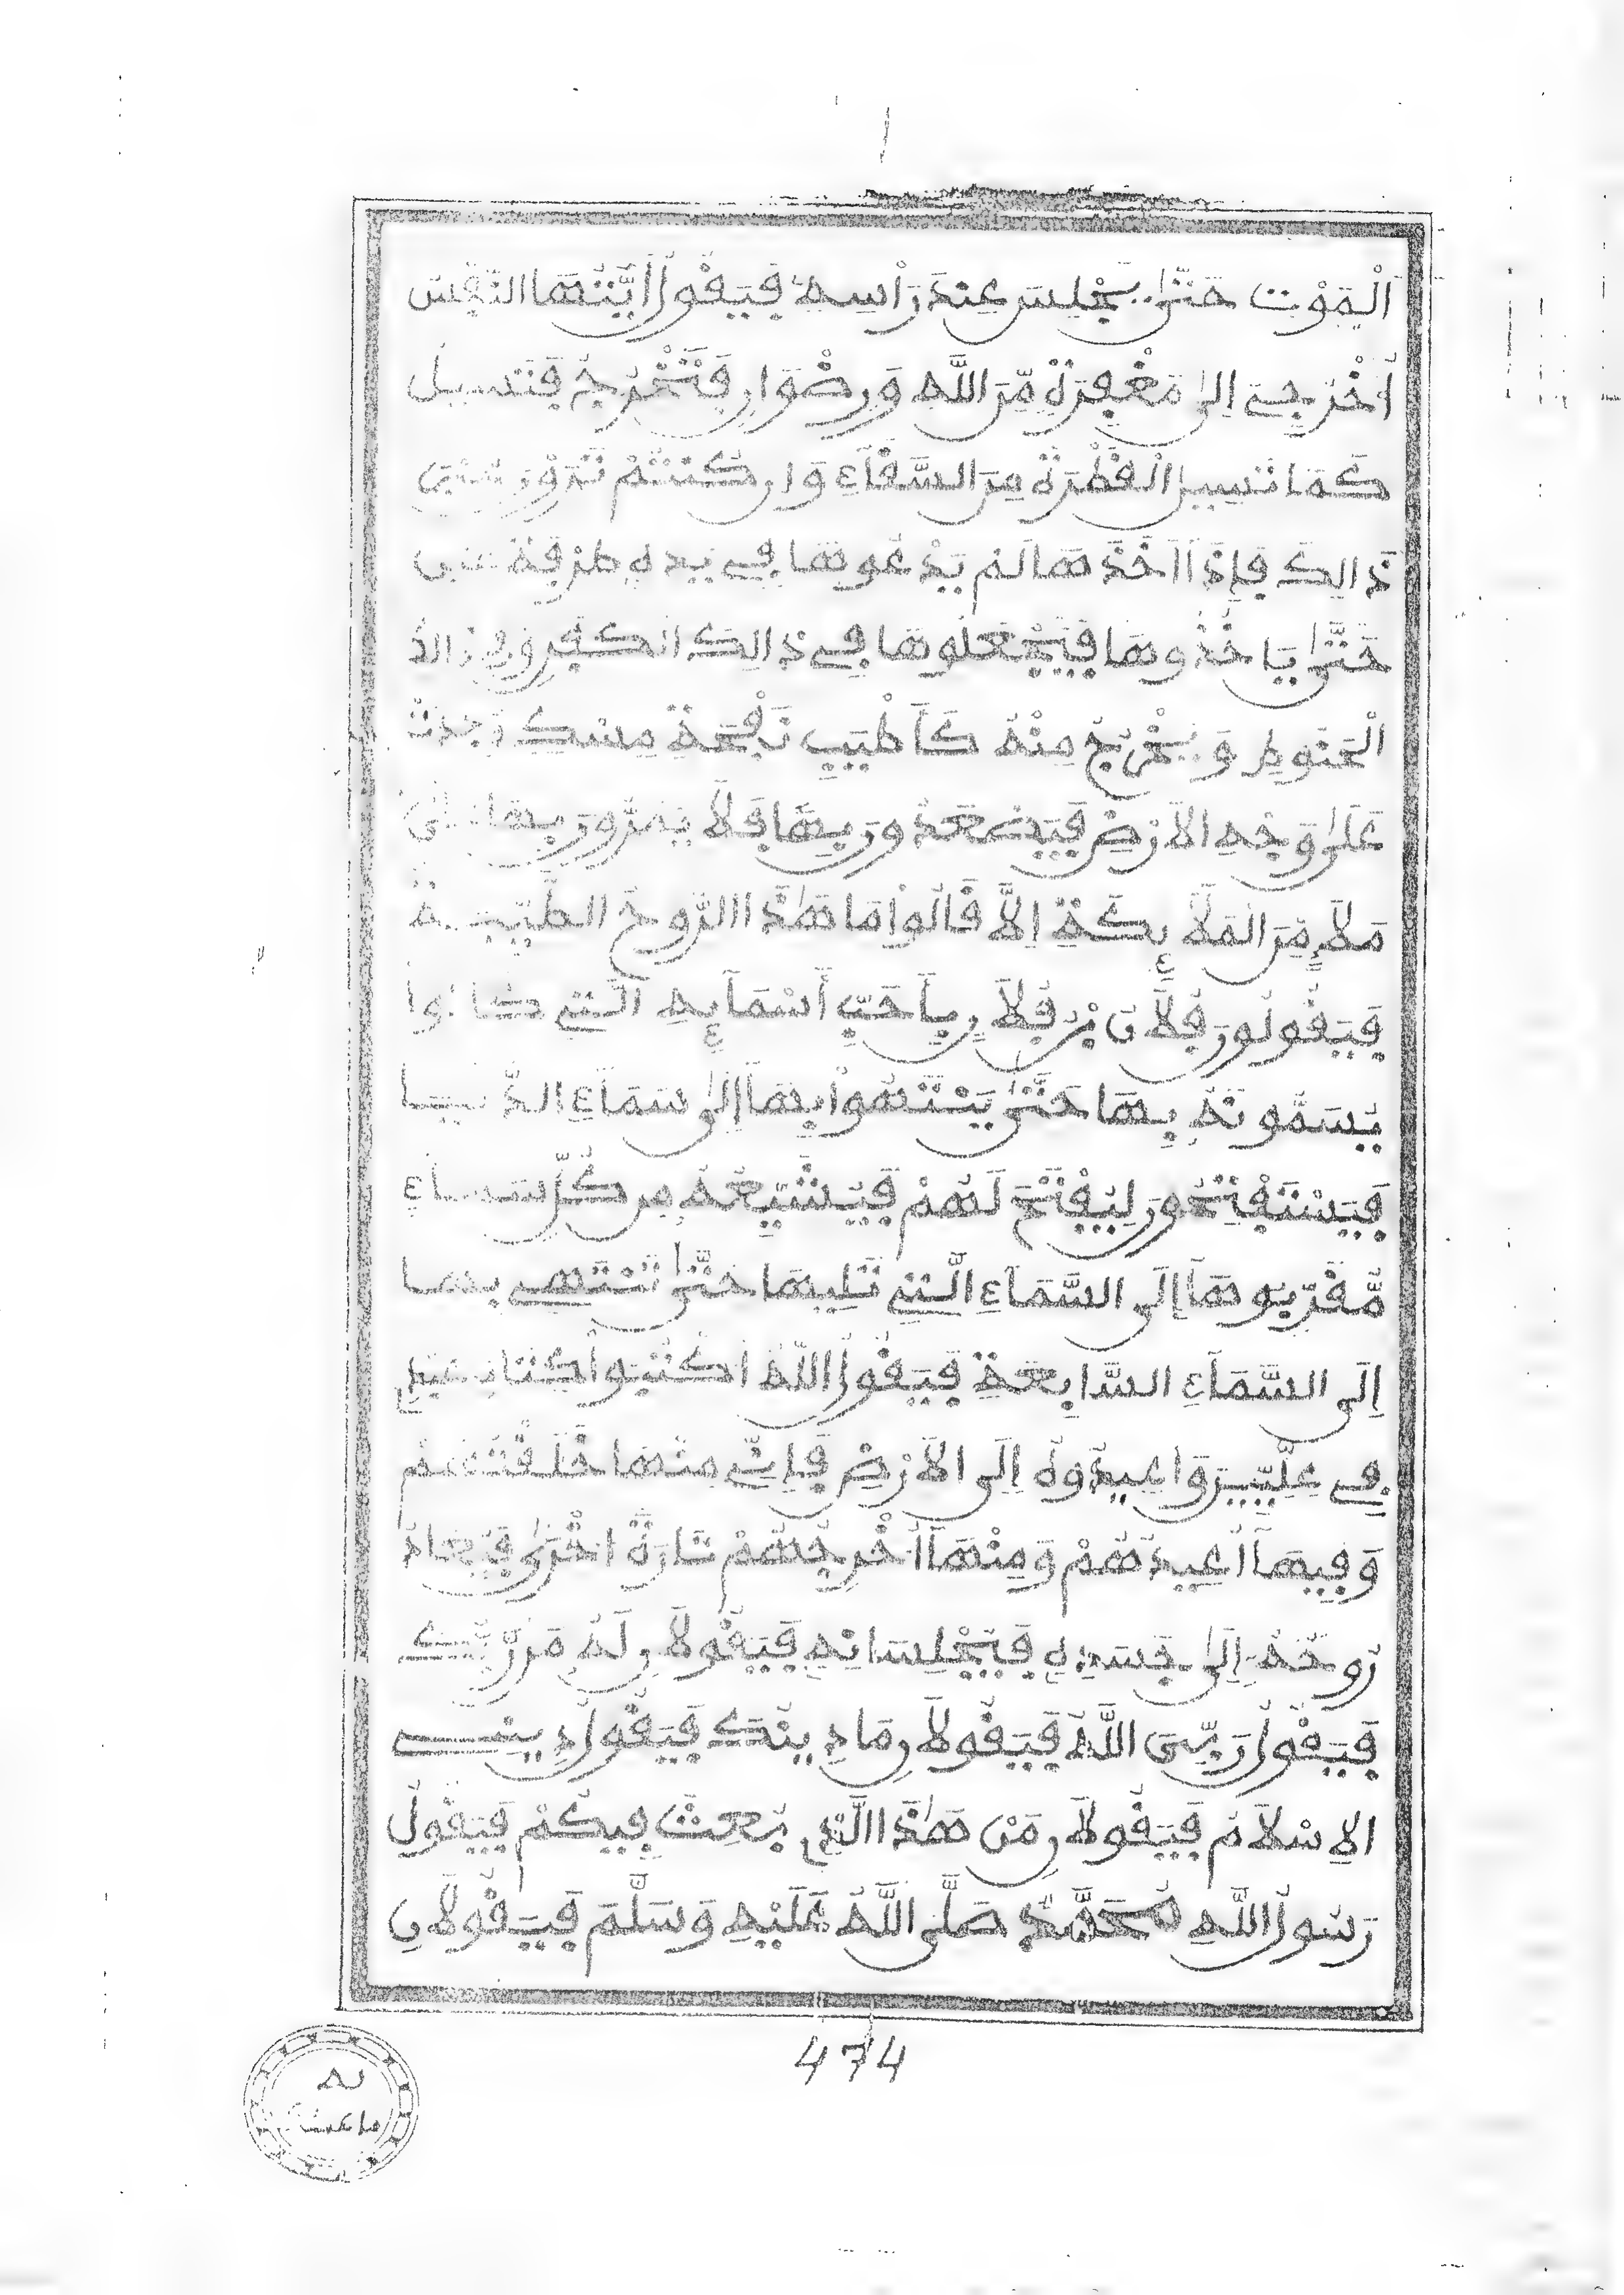 اَلْمَوْتِ حَتَّىٰ يَجْلِسَ عِنْدَ رَأْسِهِ فَيَقُولُ أَيَّتُهَا النَّفْسُ
اُخْرُجِي إِلىٰ مَغْفِرَةٍ مِّنَ اللَّهِ وَرِضْوَانٍ فَتَخْرُجُ فَتَسِيلُ
كَمَا تَسِيلُ الْقَطْرَةُ مِنَ السَّقَاءِ وَإِن كُنْتُمْ تَرَوْنَ غَيْرَ
ذَالِكَ فَإِذَا أَخَذَهَا لَمْ يَدْعُوهَا فِي يَدِهِ طَرْفَةَ عَيْنٍ
حَتَّىٰ يَاخُذُوهَا فَيَجْعَلُوهَا فِي ذَالِكَ الْكَفَنِ وَفِي ذَالِكَ
الْحَنُوطِ وَيَخْرُجُ مِنْهُ كَأَطْيَبِ نَفْحَةِ مِسْكٍ وُجِدَتْ
عَلَىٰ وَجْهِ الْأَرْضِ فَيَصْعَدُونَ بِهَا فَلَا يَمُرُّونَ بِهَا عَلَىٰ
مَلَأٍ مِّنَ الْمَلَآئِكَةِ إِلَّا قَالُواْ مَا هَٰذَا الرُّوحُ الطَّيِّبَةُ
فَيَقُولُونَ فُلَانُ بْنُ فُلَانٍ بِأَحَبِّ أَسْمَآئِهِ الَّتِي كَانُواْ
يُسَمُّونَهُ بِهَا حَتَّىٰ يَنْتَهُواْ بِهَا إِلَىٰ سَمَآءِ الدُّنْيَا
فَيَسْتَفْتِحُونَ لِيُفْتَحَ لَهُمْ فَيُشَيِّعُهُ مِن كُلِّ سَمَاءٍ
مُّقَرَّبُوهَا إِلَى السَّمَآءِ الَّتِي تَلِيهَا حَتَّىٰ تَنْتَهِي بِهَا
إِلَى السَّمَآءِ السَّابِعَةِ فَيَقُولُ اللَّهُ اُكْتُبُواْ كِتَابَ عَبْدِي
فِي عِلِّيِّينَ وَأَعِيدُوهُ إِلَى الْأَرْضِ فَإِنِّي مِنْهَا خَلَقْتُهُمْ
وَفِيهَا أُعِيدُهُمْ وَمِنْهَا أُخْرِجُهُمْ تَارَةً أُخْرَىٰ فَيُعَادُ
رُوحُهُ إِلَىٰ جَسَدِهِ فَيُجْلِسَانِهِ فَيَقُولَانِ لَهُ مَن رَّبُّكَ
فَيَقُولُ رَبِّيَ اللَّهُ فَيَقُولَانِ مَا دِينُكَ فَيَقُولُ دِينِي
الْإِسْلَامُ فَيَقُولَانِ مَنْ هَٰذَا الَّذِي بُعِثَ فِيكُمْ فَيَقُولُ
رَسُولُ اللَّهِ مُحَمَّدٌ صَلَّى اللَّهُ عَلَيْهِ وَسَلَّمَ فَيَقُولَانِ
474